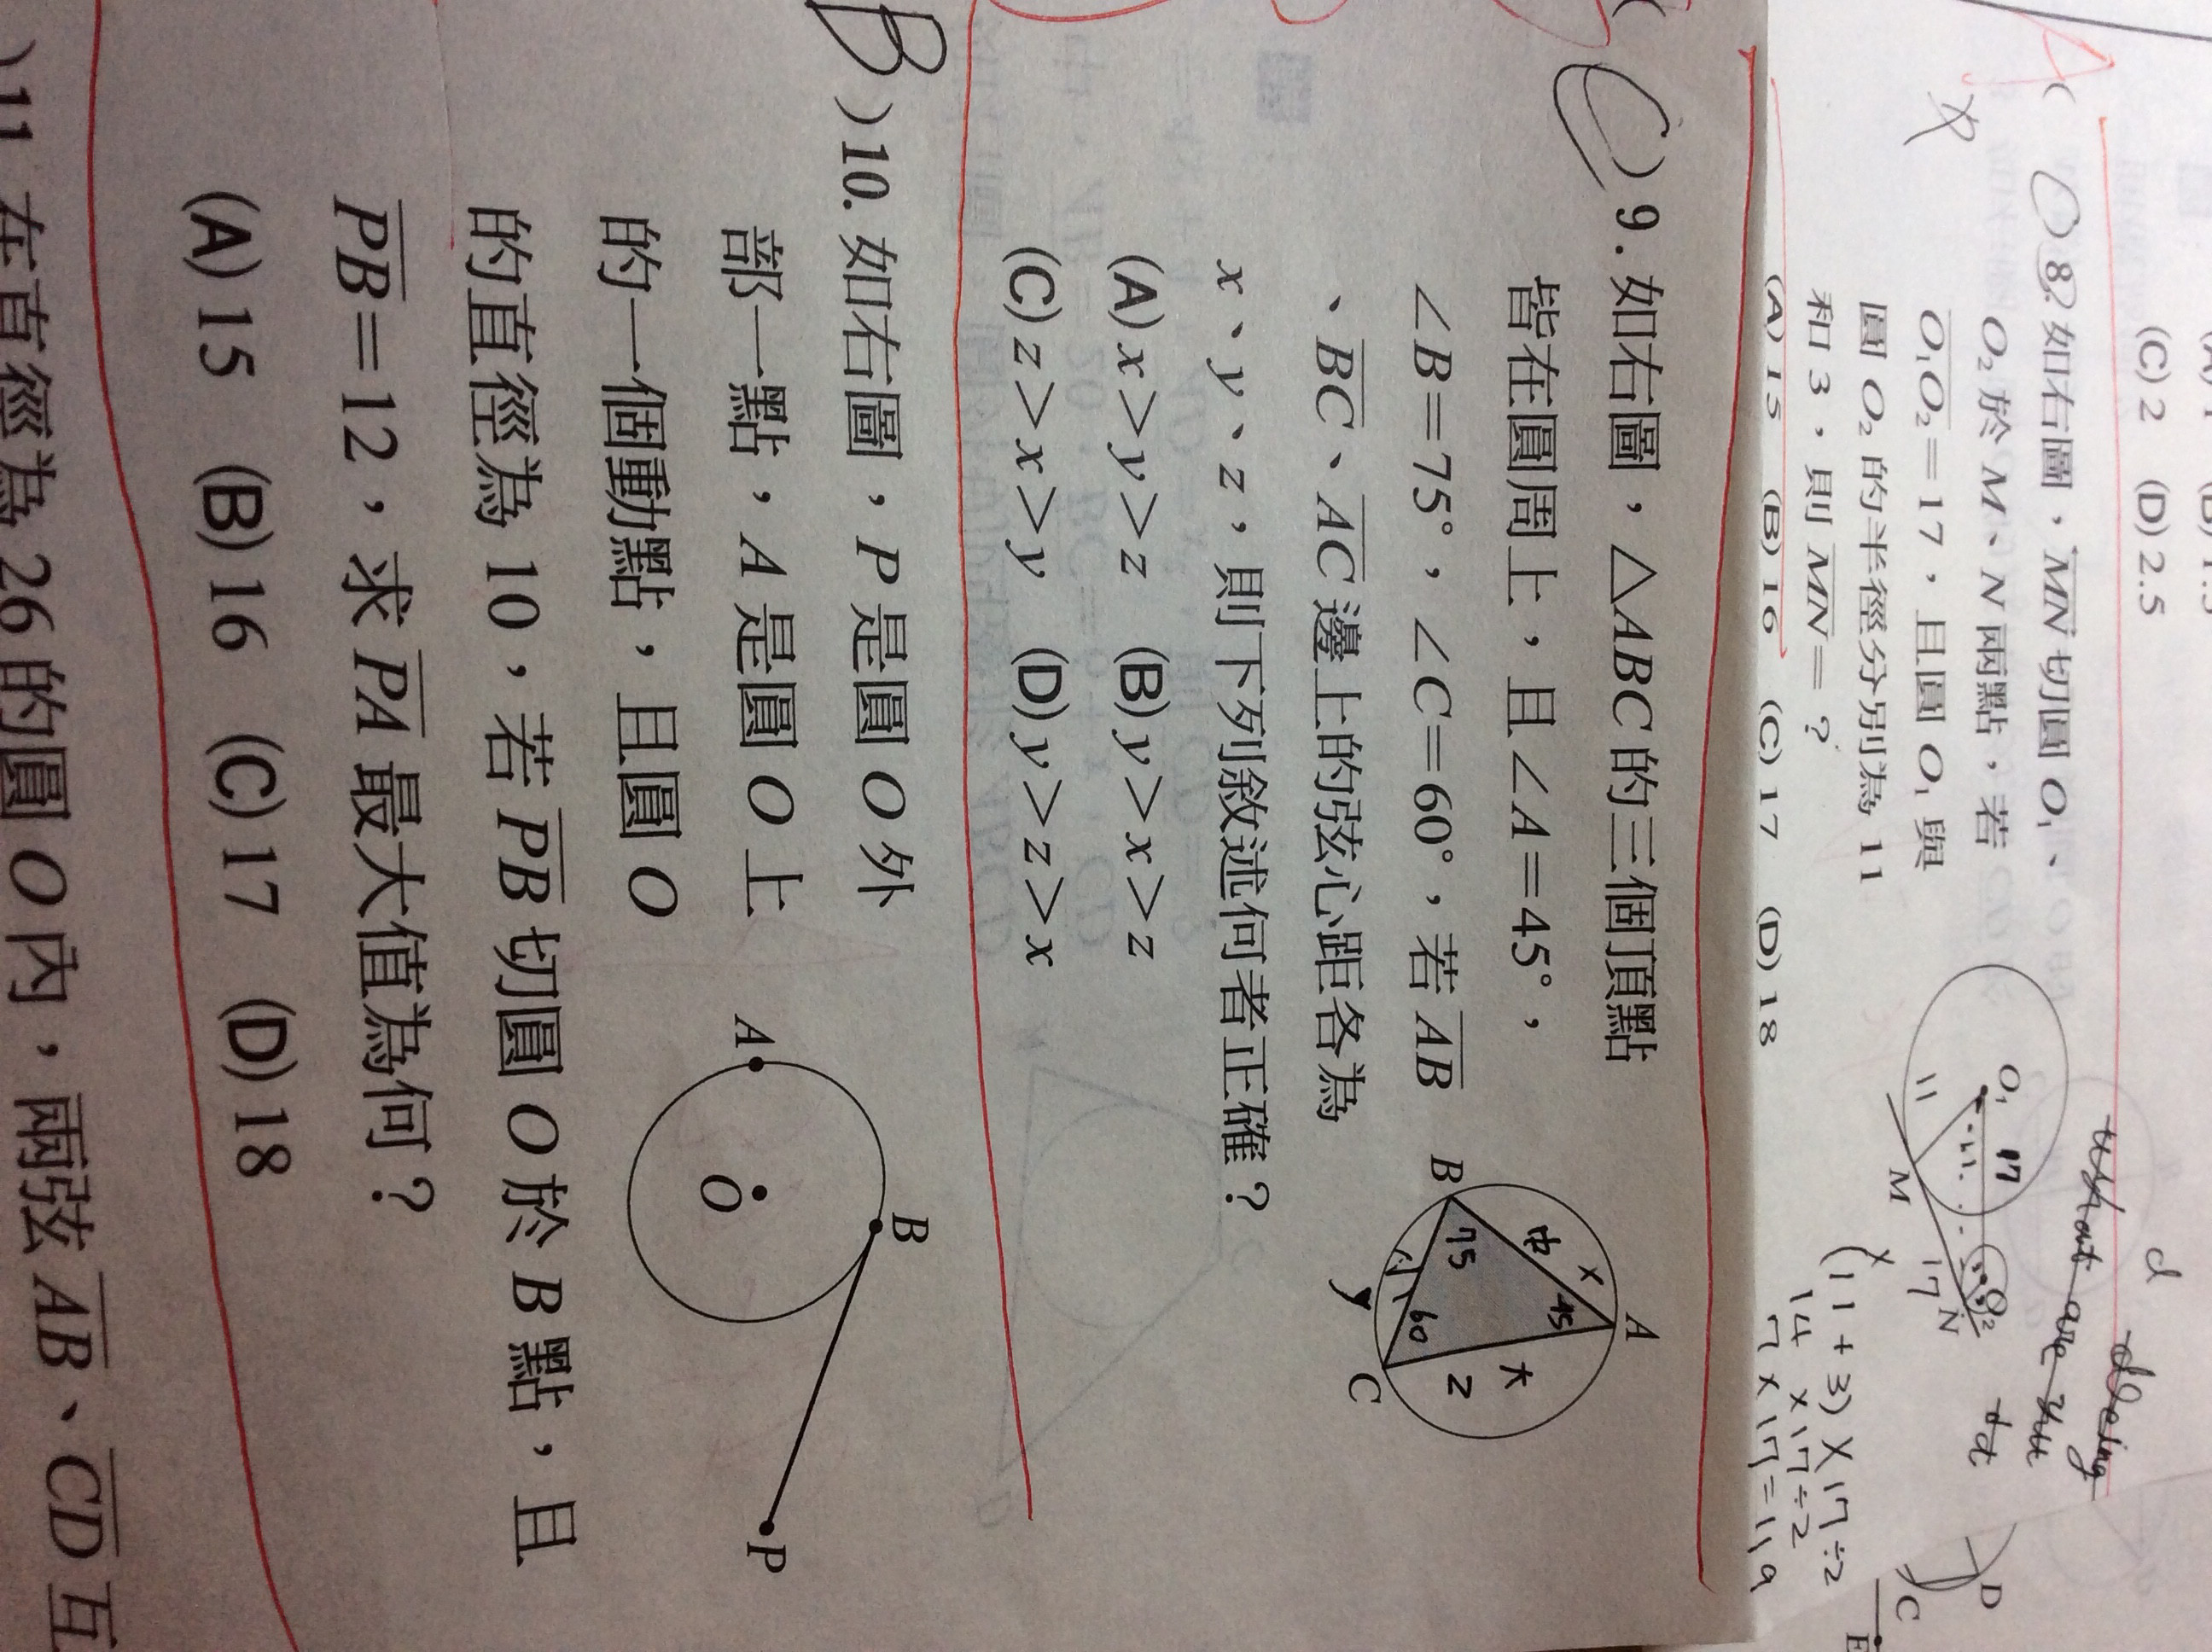 (C) 2 (D) 2.5
( ) 8. 如右圖，MN 切圓 O₁、
O₂ 於 M、N 兩點，若
O₁O₂＝17，且圓 O₁ 與
圓 O₂ 的半徑分別為 11
和 3，則 MN＝？
(A) 15 (B) 16 (C) 17 (D) 18
O₁ 17
11
M 17 N
O₂
(11+3)×17÷2
14×17÷2
7×17=119
what are you
doing
d
D
C
E
( C ) 9. 如右圖，△ABC 的三個頂點
皆在圓周上，且∠A＝45°，
∠B＝75°，∠C＝60°，若 AB
、BC、AC 邊上的弦心距各為
x、y、z，則下列敘述何者正確？
(A) x＞y＞z (B) y＞x＞z
(C) z＞x＞y (D) y＞z＞x
A
B
C
x 中
45
75
60
小
y
大
z
B ) 10. 如右圖，P 是圓 O 外
部一點，A 是圓 O 上
的一個動點，且圓 O
的直徑為 10，若 PB 切圓 O 於 B 點，且
PB＝12，求 PA 最大值為何？
(A) 15 (B) 16 (C) 17 (D) 18
A
B
O
P
) 11. 在直徑為 26 的圓 O 內，兩弦 AB、CD 互